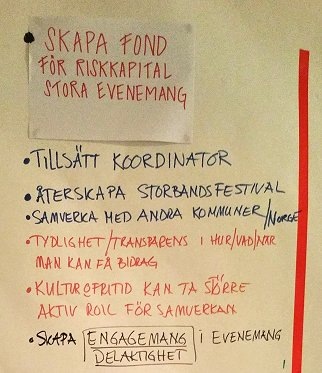 • SKAPA FOND
FÖR RISKKAPITAL
STORA EVENEMANG
• TILLSÄTT KOORDINATOR
• ÅTERSKAPA STORBANDSFESTIVAL
• SAMVERKA MED ANDRA KOMMUNER/NORGE
• TYDLIGHET/TRANSPARENS I HUR/VAD/NÄR
MAN KAN FÅ BIDRAG
• KULTUR@FRITID KAN TA STÖRRE
AKTIV ROLL FÖR SAMVERKAN
• SKAPA ENGAGEMANG I EVENEMANG
DELAKTIGHET